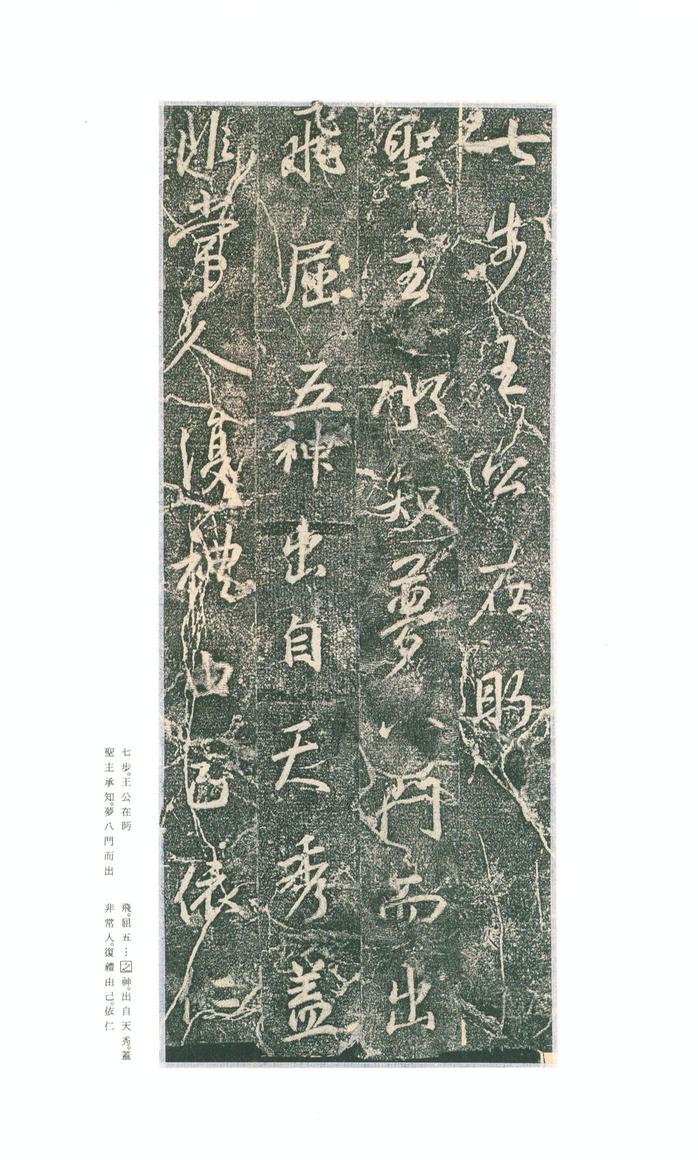 七步王公在眄
聖主承知夢八門而出
飛屈五神出自天秀蓋
非常人復禮由己依仁
七步。王公在眄
聖主承知。夢八門而出
飛。屈五…之神。出自天秀。蓋
非常人。復禮由己。依仁